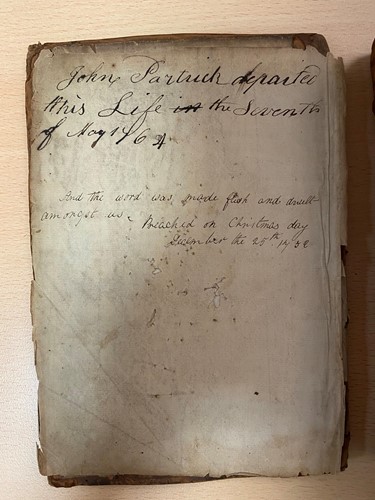 John Partrich departed
this Life in the Seventh
of May 1764
And the word was made flesh and dwelt
amongst us. Preached on Christmas day
December the 25th